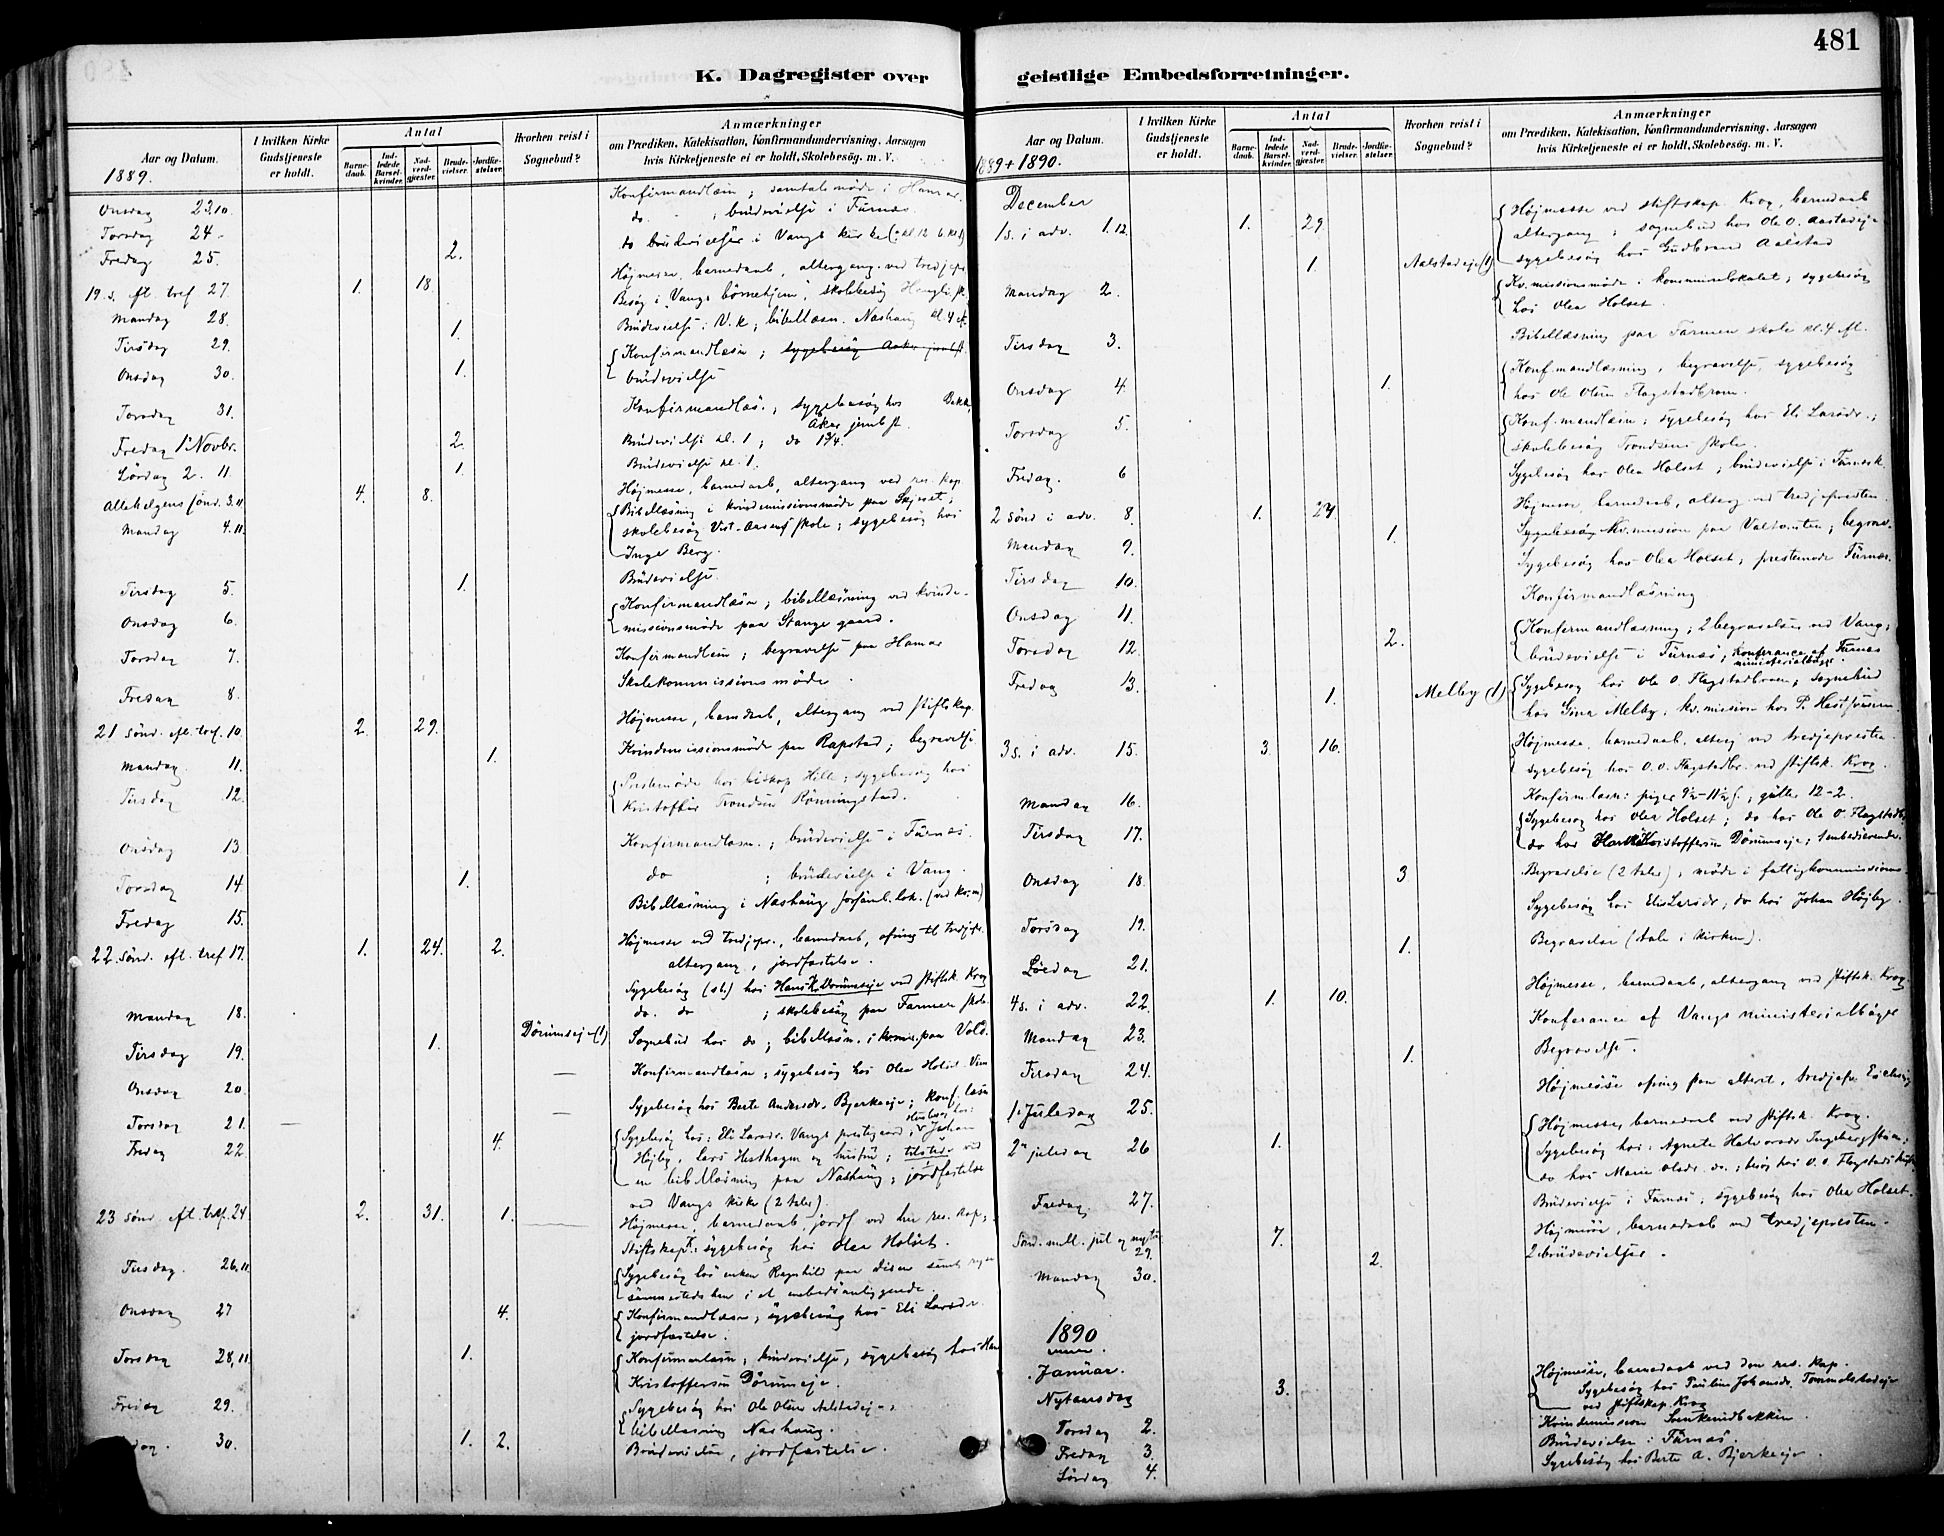 481
K. Dagregister over geistlige Embedsforretninger.
Aar og Datum.
1889.
I hvilken Kirke Gudstjeneste er holdt.
Antal
Barnedaab.
Indledede Barselkvinder.
Nadverdgjester.
Brudevielser.
Jordfæstelser.
Hvorhen reist i Sognebud?
Anmærkninger
om Prædiken, Katekisation, Konfirmandundervisning, Aarsagen hvis Kirketjeneste ei er holdt, Skolebesög. m. V.
Onsdag 23.10. Konfirmandlæsn; samtalemöde i Hamar.
Torsdag 24. do. ; brudevielse i Furnæs
Fredag 25. 2. do brudevielser i Vangs kirke
19. s. eft. tref. 27. 1. 18. Höjmesse, barnedaab, altergang. ved tredjepr.
Mandag 28. Besög i Vangs börnehjem, skolebesög
Tirsdag 29. 1. Brudevielse i V.k; bibellæsn. Nashaug kl. 4 eft.
Onsdag 30. 1. Konfirmandlæsn; sygebesög Aker jernbst.
brudevielse
Torsdag 31. Konfirmandlæs.; sygebesög hos Bekk,
Aker jernbst.
Fredag 1 Novbr. 2. Brudevielse kl. 1; do 1¾.
Lördag 2. 11. 1. Brudevielse kl. 1.
Allehelgens sönd. 3.11. 4. 8. Höjmesse, barnedaab, altergang ved res. kap.
Mandag 4.11. Bibellæsning i kvindemissionsmöde paa Skjeset;
skolebesög Vest-Aasens skole; sygebesög hos
Inger Berg.
Tirsdag 5. 1. Brudevielse.
Onsdag 6. Konfirmandlæsn; bibellæsning ved kvinde-
missionsmöde paa Stange gaard.
Torsdag 7. Konfirmandlæsn; begravelse paa Hamar
Fredag 8. Skolekommissionsmöde.
21 sönd. eft. tref. 10. 2. 29. Höjmesse, barnedaab, altergang ved stiftskap.
Mandag 11. 1. Kvindemissionsmöde paa Rapstad; begravelse
Tirsdag 12. Prestemöde hos biskop Hille; sygebesög hos
Kristoffer Trondsen Rönningstad.
Onsdag 13. Konfirmandlæsn.; brudevielse i Furnæs.
Torsdag 14. 1. do ; brudevielse i Vang.
Fredag 15. Bibellæsning i Nashaug forsaml.lok. (ved kv.m)
22. sönd. eft. tref 17. 1. 24. 2. Höjmesse ved tredjepr., barnedaab, ofring til tredjepr.
altergang, jordfæstelse.
Sygebesög (st.) hos Hans K. Dörumseje ved stiftsk. Krog
Mandag 18. do. do ; skolebesög paa Farmen skole
Tirsdag 19. 1. Dörumseje (1) Sognebud hos do; bibellæsn. i kvmis. paa Vold.
Onsdag 20. — Konfirmandlæsn; sygebesög hos Olea Holset
Torsdag 21. — — Sygebesög hos Berte Andersdr. Bjerkeeje; konf. læsn
Fredag 22. 4. Sygebesög hos: Eli Larsdr. Vangs prestegaard; Johan
Höjby, Lars Hesthagen og hustru; tilstede ved
en bibellæsning paa Nashaug; jordfæstelse
ved Vangs kirke (2 taler).
23 sönd. eft. tref. 24 2. 31. 1. Höjmesse, barnedaab, jordf. ved hr res. kap.;
Stiftskap.: sygebesög hos Olea Holset.
Tirsdag. 26.11. Sygebesög hos enken Ragnhild paa Disen samt
sammesteds hen i et embedsanliggende.
Onsdag 27 4. Konfirmandlæsn; sygebesög hos Eli Larsdr.
jordfæstelse.
Torsdag 28.11. 1. Konfirmanlæsn; brudevielse; sygebesög hos Hans
Kristoffersen Dörumseje.
Fredag 29. Sygebesög hos Ole Olsen Aalstadeje;
bibellæsning Nashaug.
30. 1. 2. Brudevielse, jordfæstelse.
Aar og Datum.
1889 + 1890.
I hvilken Kirke Gudstjeneste er holdt.
Antal
Barnedaab.
Indledede Barselkvinder.
Nadverdgjester.
Brudevielser.
Jordfæstelser.
Hvorhen reist i Sognebud?
Anmærkninger
om Prædiken, Katekisation, Konfirmandundervisning, Aarsagen hvis Kirketjeneste ei er holdt, Skolebesög. m. V.
December
1 s. i adv. 1.12. 1. 29. Höjmesse ved stiftskap. Krog, barnedaab
altergang; sognebud hos Ole O. Aastadeje
1. Aalstadeje (1) sygebesög hos Gudbrand Aalstad
Mandag 2. Kv.missionsmöde i kommunelokalet; sygebesög
hos Olea Holset.
Tirsdag 3. Bibellæsning paa Farmen skole kl. 4 eft.
Onsdag 4. 1. Konf.mandlæsning, begravelse, sygebesög
hos Ole Olsen Flagstadbroen.
Torsdag 5. Konf.mandlæsn; sygebesög hos Eli Larsdr.;
skolebesög Trondsens skole.
Fredag. 6 Sygebesög hos Olea Holset; brudevielse i Furnæsk.
2 sönd i adv. 8. 1. 24. Höjmesse, barnedaab, alterg. ved tredjepresten.
Mandag 9. 1. Kv.mission paa Valtventen; begrav.
Tirsdag 10. Sygebesög hos Olea Holset; prestemöde Furnæs.
Onsdag 11. Konfirmandlæsning
Torsdag 12. 2. Konfirmandlæsning; 2 begravelser ved Vang;
brudevielse i Furnæs; konferance af Furnæs
ministerialböger.
Fredag 13. 1. Melby (1) Sygebesög hos Ole O. Flagstadbroen; sognebud
hos Gina Melby. kv.mission hos P. Hestsveen
3 s. i adv. 15. 3. 16. Höjmesse, barnedaab, alterg ved tredjepresten
sygebesög hos O. O. Flagstadbr. ved stiftsk. Krog.
Mandag 16. Konfirm.læsn: piger 9½-11½ f., gutter 12-2.
Tirsdag 17. Sygebesög hos Olea Holset; do hos Ole O. Flagstadbr.
do hos Hans Kristoffersen Dörumseje; 1 embedserende.
Onsdag 18. 3 Begravelse (2 taler), möde i fattigkommissionen.
Torsdag 19. Sygebesög hos Eli Larsdr; do hos Johan Höjby.
Löedag 21. 1. Begravelse (tale i kirken).
4 s. i adv. 22. 1. 10. Höjmesse, barnedaab, altergang ved stiftsk. Krog.
Mandag 23. Konferance af Vangs ministerialböger
Tirsdag 24. 1. Begravelse.
1. Juledag 25. Höjmesse ofring paa alteret, tredjepr.
2den juledag 26 1. Höjmesse, barnedaab ved stiftsk. Krog.
Sygebesög hos: Agnete Halvorsdr Ingebergstuen;
do hos Marie Olsdr. do.; besög hos O. O. Flagstads
Fredag. 27. Brudevielse i Furnæs; sygebesög hos Olea Holset.
Sönd. mell. jul og nytt. 29. 7. Höjmesse, barnedaab ved tredjepresten.
Mandag 30. 2. 2 brudevielser.
1890
Januar.
Nytaarsdag 3. Höjmesse, barnedaab ved den res. kap.
Sygebesög hos Pauline Johansdr. Tommelstadeje
ved stiftskap. Krog
Torsdag 2. Kvindemission Svenkerudbakken.
Fredag 3. Brudevielse i Furnæs.
Lördag 4. Sygebesög hos Berte A. Bjerkeeje.